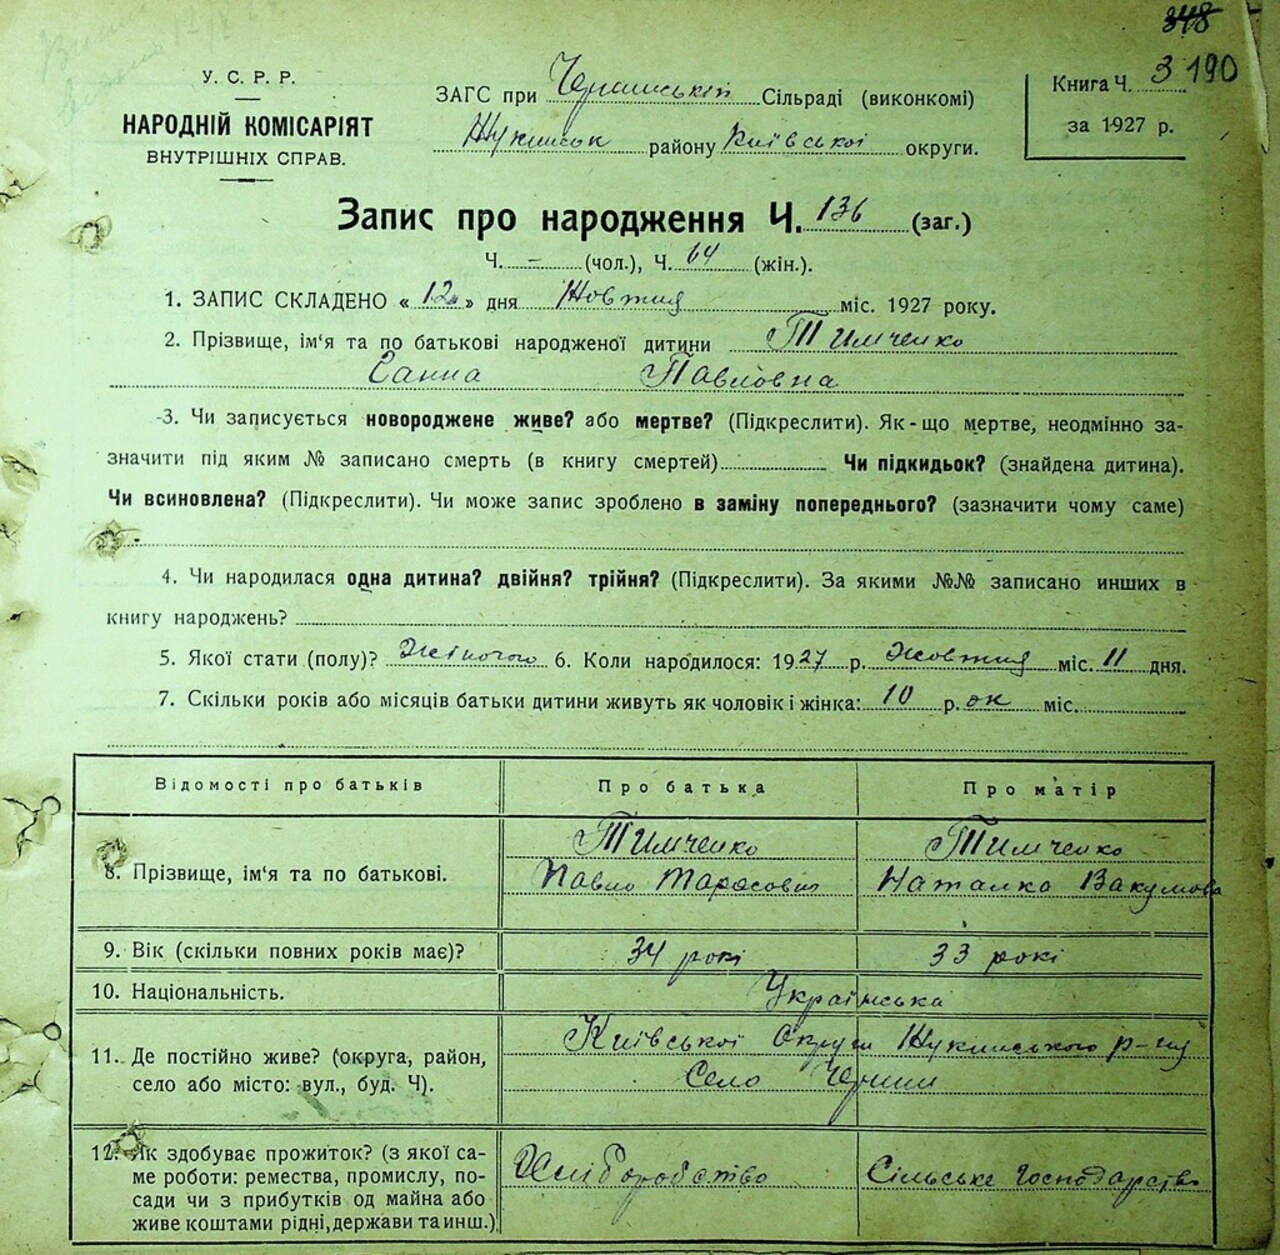 348
190
У. С. Р. Р.
НАРОДНІЙ КОМІСАРІЯТ
ВНУТРІШНІХ СПРАВ.
ЗАГС при Чернинській Сільраді (виконкомі)
Жукинськ району Київської округи.
Книга Ч. 3
за 1927 р.
Запис про народження Ч. 136 (заг.)
Ч. - (чол.), Ч. 64 (жін.).
1. ЗАПИС СКЛАДЕНО « 12 » дня Жовтня міс. 1927 року.
2. Прізвище, ім'я та по батькові народженої дитини Тимченко
Ганна Павловна
3. Чи записується новороджене живе? або мертве? (Підкреслити). Як-що мертве, неодмінно за-
значити під яким № записано смерть (в книгу смертей) Чи підкидьок? (знайдена дитина).
Чи всиновлена? (Підкреслити). Чи може запис зроблено в заміну попереднього? (зазначити чому саме)
4. Чи народилася одна дитина? двійня? трійня? (Підкреслити). За якими №№ записано инших в
книгу народжень?
5. Якої стати (полу)? Жіночого 6. Коли народилося: 1927 р. Жовтня міс. 11 дня.
7. Скільки років або місяців батьки дитини живуть як чоловік і жінка: 10 р.ок міс.
Відомості про батьків Про батька Про матір
8. Прізвище, ім'я та по батькові.
Тимченко Тимченко
Павло Тарасович Наталка Вакумова
9. Вік (скільки повних років має)? 34 рокі 33 рокі
10. Національність. Українська
11. Де постійно живе? (округа, район,
село або місто: вул., буд. Ч).
Київської Округи Жукинського р-ну
Село Чернин
12. Як здобуває прожиток? (з якої са-
ме роботи: ремества, промислу, по-
сади чи з прибутків од майна або
живе коштами рідні, держави та инш.)
Хліборобство Сільське господарство